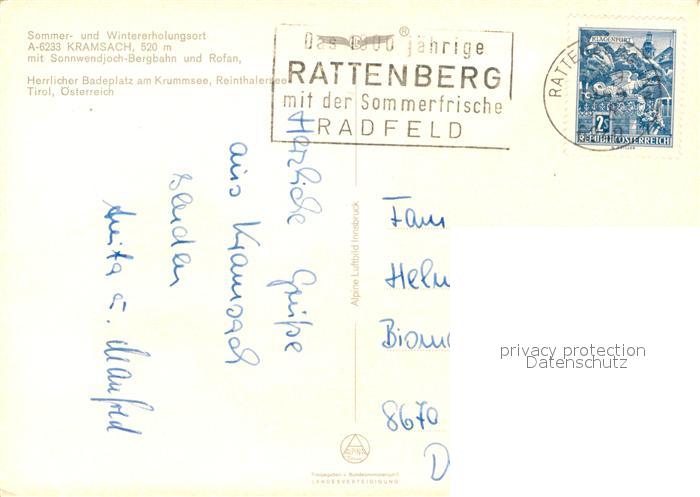 Sommer- und Wintererholungsort
A-6233 KRAMSACH, 520 m
mit Sonnwendjoch-Bergbahn und Rofan,
Herrlicher Badeplatz am Krummsee, Reinthalersee
Tirol, Österreich
Das 1000 jährige
RATTENBERG
mit der Sommerfrische
RADFELD
®
RATTE
KLAGENFURT
2S
REPUBLIK ÖSTERREICH
Herzliche Grüße
aus Kramsach
senden
Anita u. Manfred
Alpine Luftbild Innsbruck
Fam
Helm
Bism
8670
D
privacy protection
Datenschutz
ALPINE
Freigegeben v. Bundesministerium f.
LANDESVERTEIDIGUNG